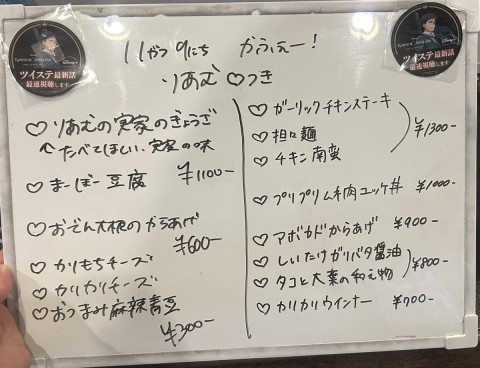 ツイステ最新話
最速視聴します
Disney+
11がつ9にち かふぇー!
りあむ♡つき
ツイステ最新話
最速視聴します
Disney+
♡りあむの実家のぎょうざ
↑たべてほしい、実家の味
♡まーぼー豆腐 ¥1100-
♡おでん大根のからあげ
¥600-
♡かりもちチーズ
♡カリカリチーズ
♡おつまみ麻辣青豆
¥300-
♡ガーリックチキンステーキ
♡担々麺
¥1300-
♡チキン南蛮
♡プリプリム牛肉ユッケ丼 ¥1000-
♡アボカドからあげ ¥900-
♡しいたけガリバタ醤油
♡タコと大葉の和え物
¥800-
♡カリカリウインナー ¥700-